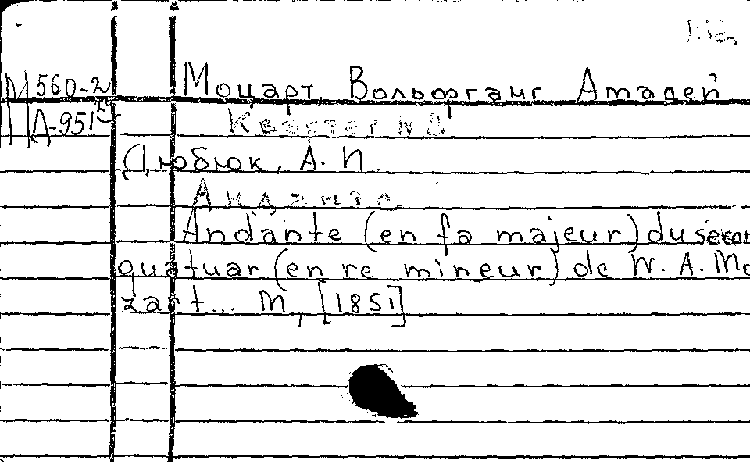 М 560-2
Д-951
Моцарт, Вольфганг Амадей
Квартет N
Дюбюк, А. И.
Анданте.
Andante (en fa majeur) du secon
quatuar (en re mineur) de W. A. Mo
zart... М, [1851]